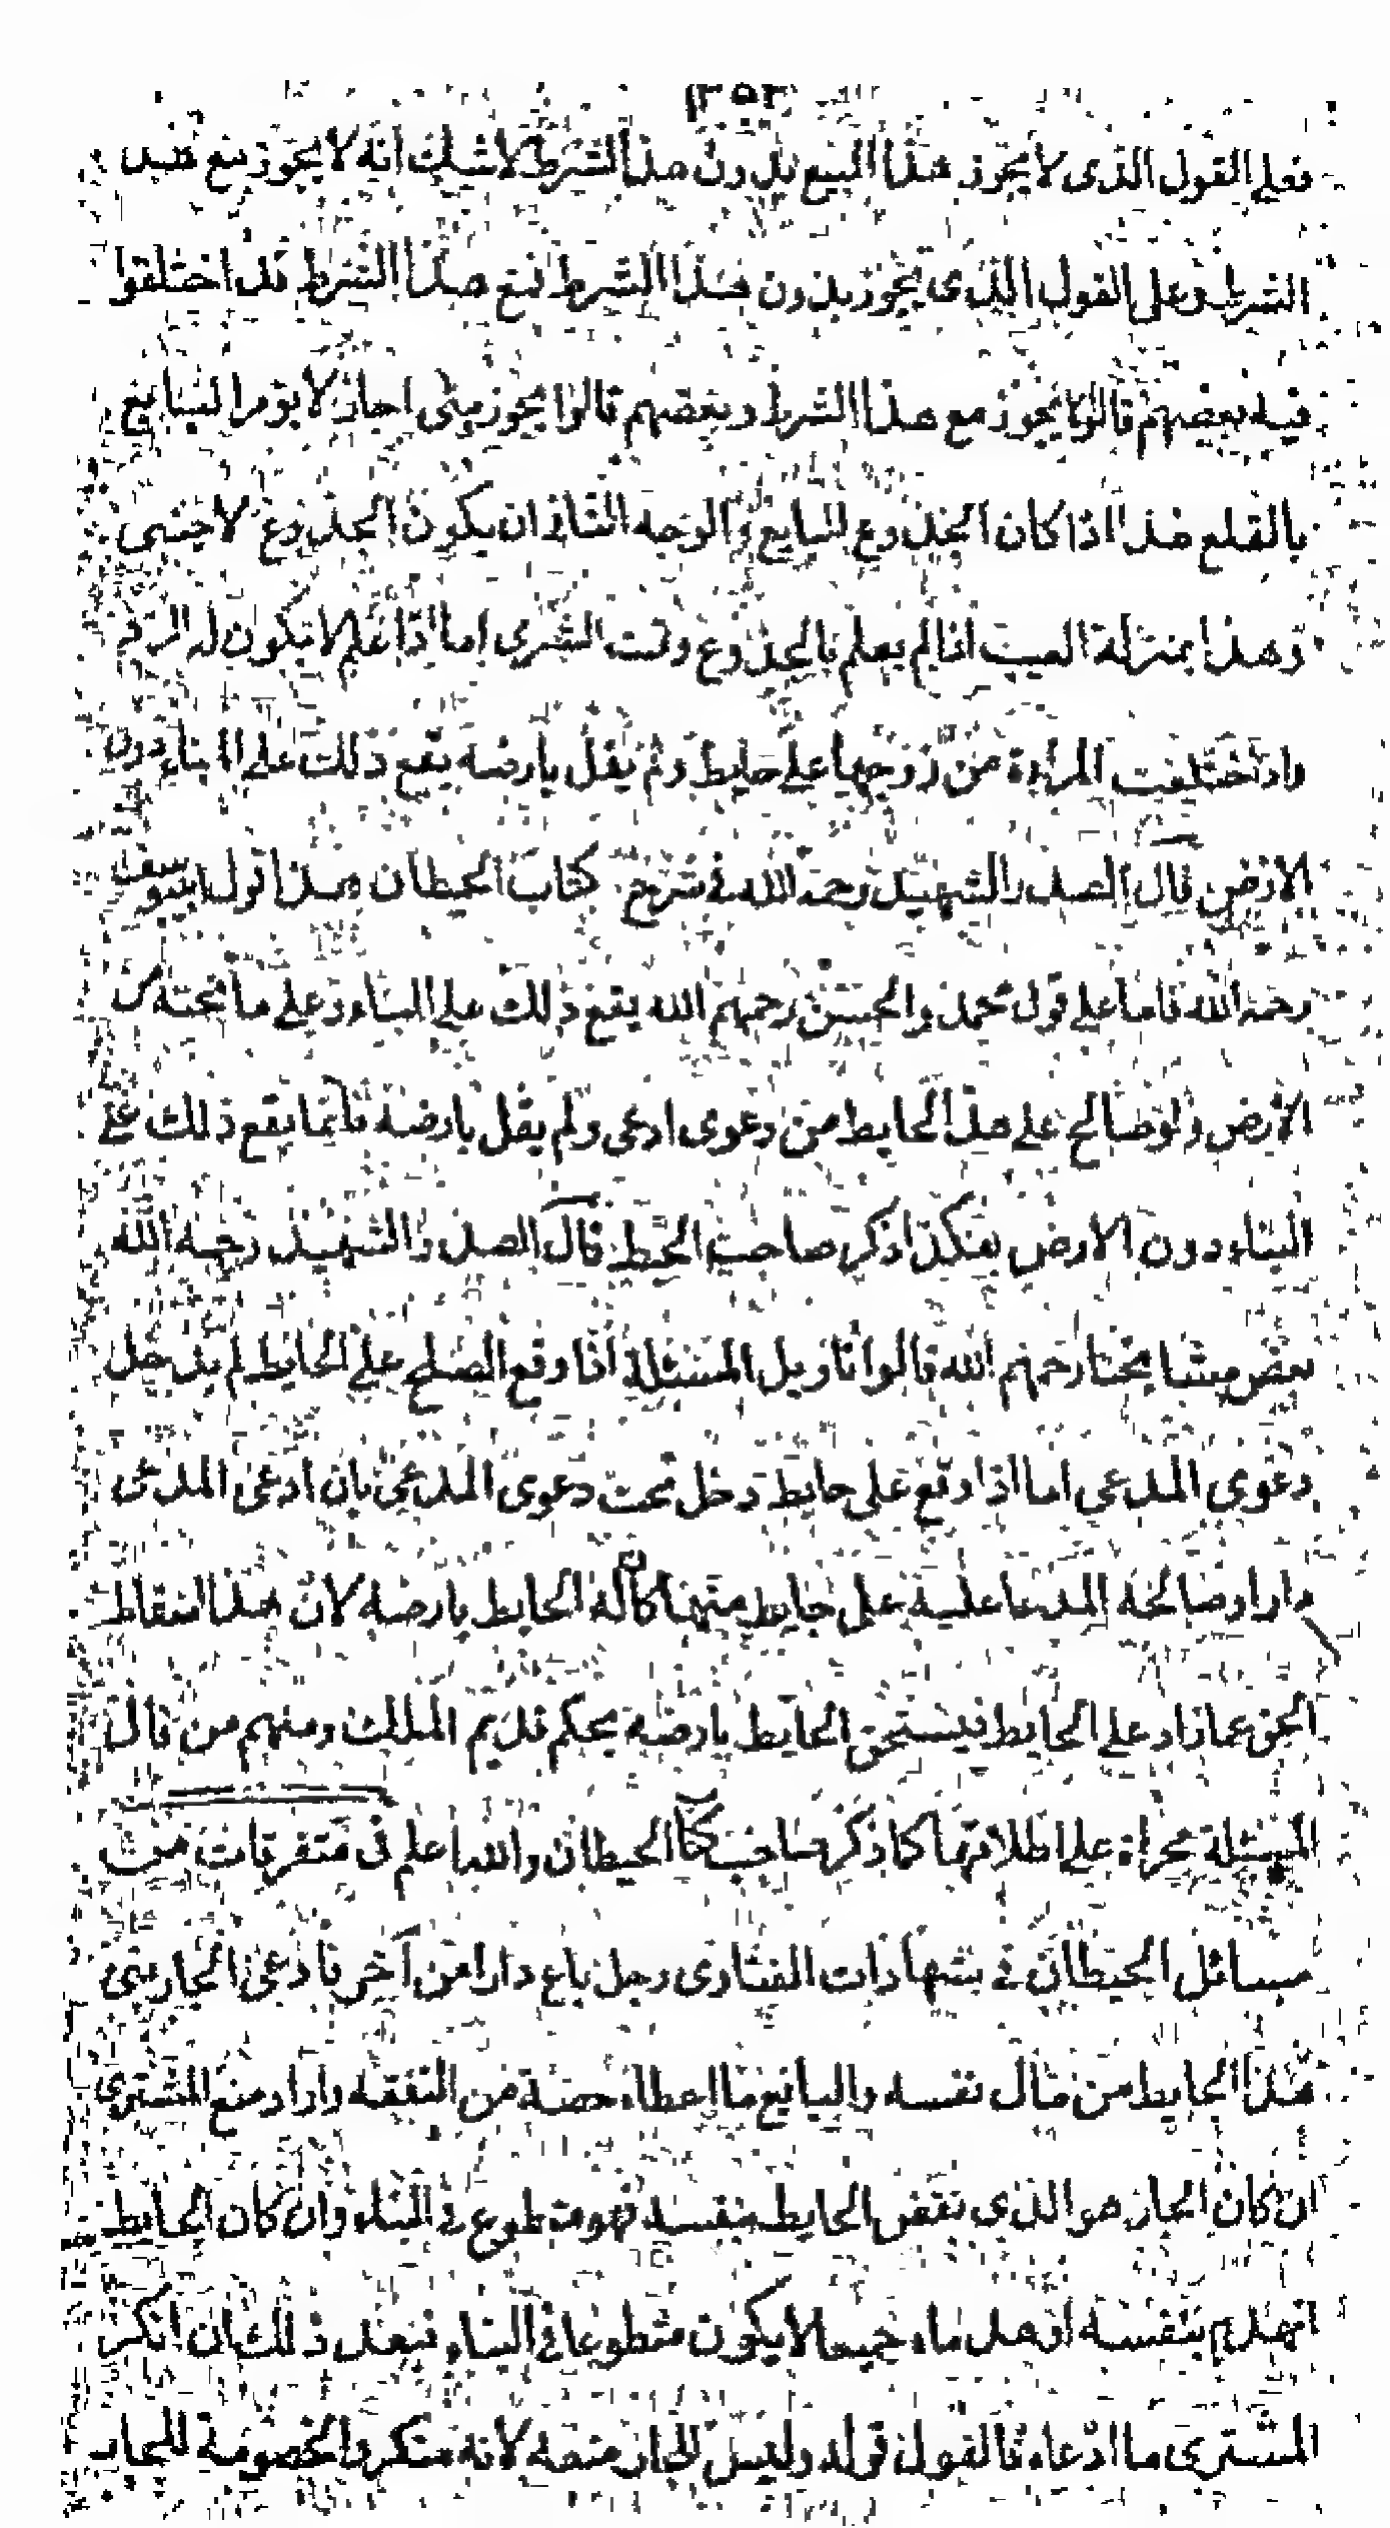 ١٣٥٣
فعلى القول الذى لا يجوز هذا البيع بدون هذا الشرط لا شك انه لا يجوز مع هذا
الشرط وعلى القول الذى يجوز بدون هذا الشرط فمع هذا الشرط قد اختلفوا
فيه بعضهم قالوا لا يجوز مع هذا الشرط وبعضهم قالوا يجوز حتى لا يؤمر البايع
بالقلع هذا اذا كان الجذوع للبايع والوجه الثانى ان يكون الجذوع لاجنبى
وهذا بمنزلة العيب اذا لم يعلم بالجذوع وقت الشرى اما اذا علم لا يكون له الرد
واذا اختلعت المراءة من زوجها على حايط ولم يقل بارضه يقع ذلك على البناء دون
الارض قال الصدر الشهيد رحمه الله فى شرح كتاب الحيطان هذا قول ابى يوسف
رحمه الله فاما على قول محمد والحسن رحمهم الله يقع ذلك على البناء وعلى ما تحته من
الارض ولو صالح على هذا الحايط من دعوى ادعى ولم يقل بارضه فانما يقع ذلك على
البناء دون الارض هكذا ذكر صاحب الحيط قال الصدر الشهيد رحمه الله
بعض مشايخنا رحمهم الله قالوا تاويل المسئلة اذا وقع الصلح على الحايط لم يدخل
دعوى المدعى اما اذا وقع على حايط دخل تحت دعوى المدعى بان ادعى المدعى
دارا وصالحه المدعا عليه على حايط منها كان له الحايط بارضه لان هذا اسقاط
الحق عما زاد على الحايط فيستحق الحايط بارضه بحكم قديم الملك ومنهم من قال
المسئلة مجراة على اطلاقها كما ذكر صاحب كتاب الحيطان والله اعلم فى متفرقات من
مسائل الحيطان فى شهادات الفتاوى رجل باع دارا من آخر فادعى الجار بنى
هذا الحايط من مال نفسه والبايع ما اعطاء حصة من النفقة واراد منع المشترى
ان كان الجار هو الذى نقض الحايط بنفسه فهو متطوع فى البناء وان كان الحايط
انهدم بنفسه او هدماه جميعا لا يكون متطوعا فى البناء فبعد ذلك ان انكر
المشترى ما ادعاه فالقول قوله وليس للجار منعه لانه منكر والخصومة للجار